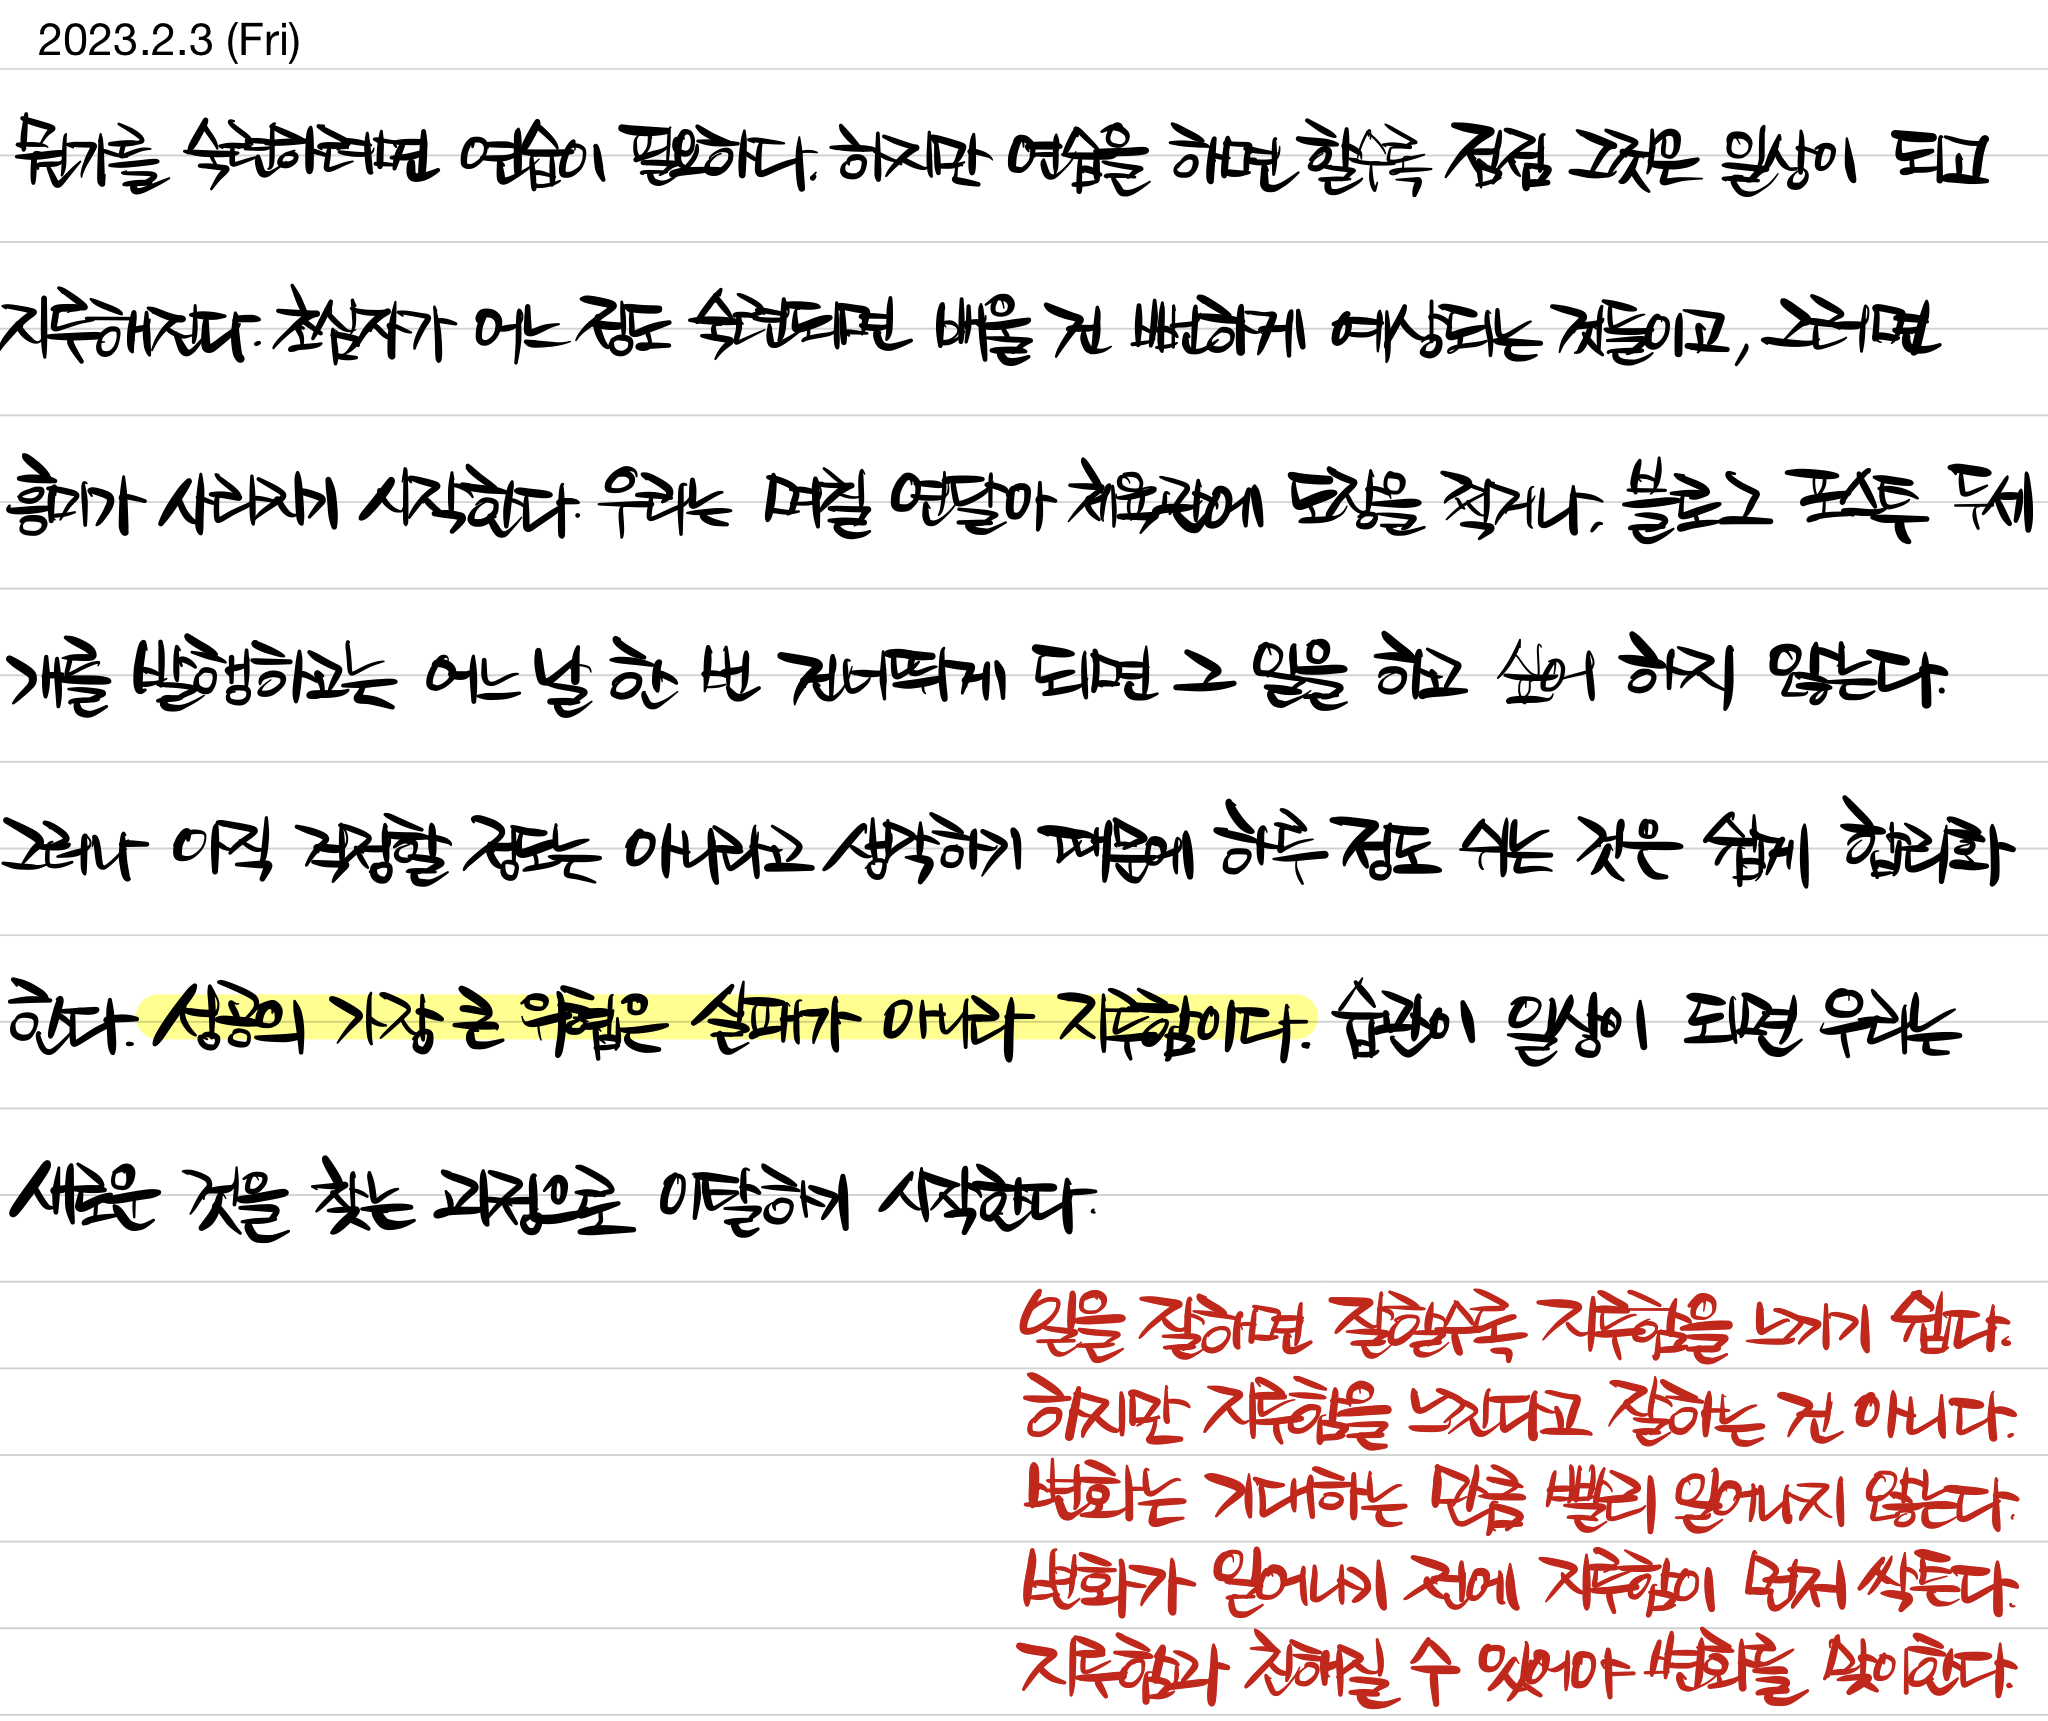 2023.2.3 (Fri)
뭔가를 숙련하려면 연습이 필요하다. 하지만 연습을 하면 할수록 점점 그것은 일상이 되고
지루해진다. 초심자가 어느 정도 숙련되면 배울 건 뻔하게 예상되는 것들이고, 그러면
흥미가 사라지기 시작한다. 우리는 며칠 연달아 체육관에 도장을 찍거나, 블로그 포스트 두세
개를 발행하고는 어느 날 한 번 건너뛰게 되면 그 일을 하고 싶어 하지 않는다.
그러나 아직 걱정할 정도는 아니라고 생각하기 때문에 하루 정도 쉬는 것은 쉽게 합리화
한다. 성공의 가장 큰 위협은 실패가 아니라 지루함이다. 습관이 일상이 되면 우리는
새로운 것을 찾는 과정으로 이탈하기 시작한다.
일을 잘하면 잘할수록 지루함을 느끼기 쉽다.
하지만 지루함을 느낀다고 잘하는 건 아니다.
변화는 기대하는 만큼 빨리 일어나지 않는다.
변화가 일어나기 전에 지루함이 먼저 싹튼다.
지루함과 친해질 수 있어야 변화를 맞이한다.